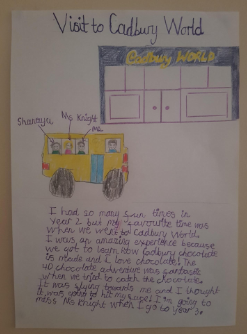 Visit to Cadbury World
Cadbury WORLD
Sharayu
Ms Knight
me
I had so many fun times in
Year 2 but my favourite time was
when we went to Cadbury World.
I was an amazing experience because
we got to learn how Cadbury chocolate
is made and I love chocolate. The
4D chocolate adventure was fantastic
when we tried to catch the chocolate.
It was flying towards me and I thought
it was going to hit my face! I'm going to
miss Ms Knight when I go to year 3.